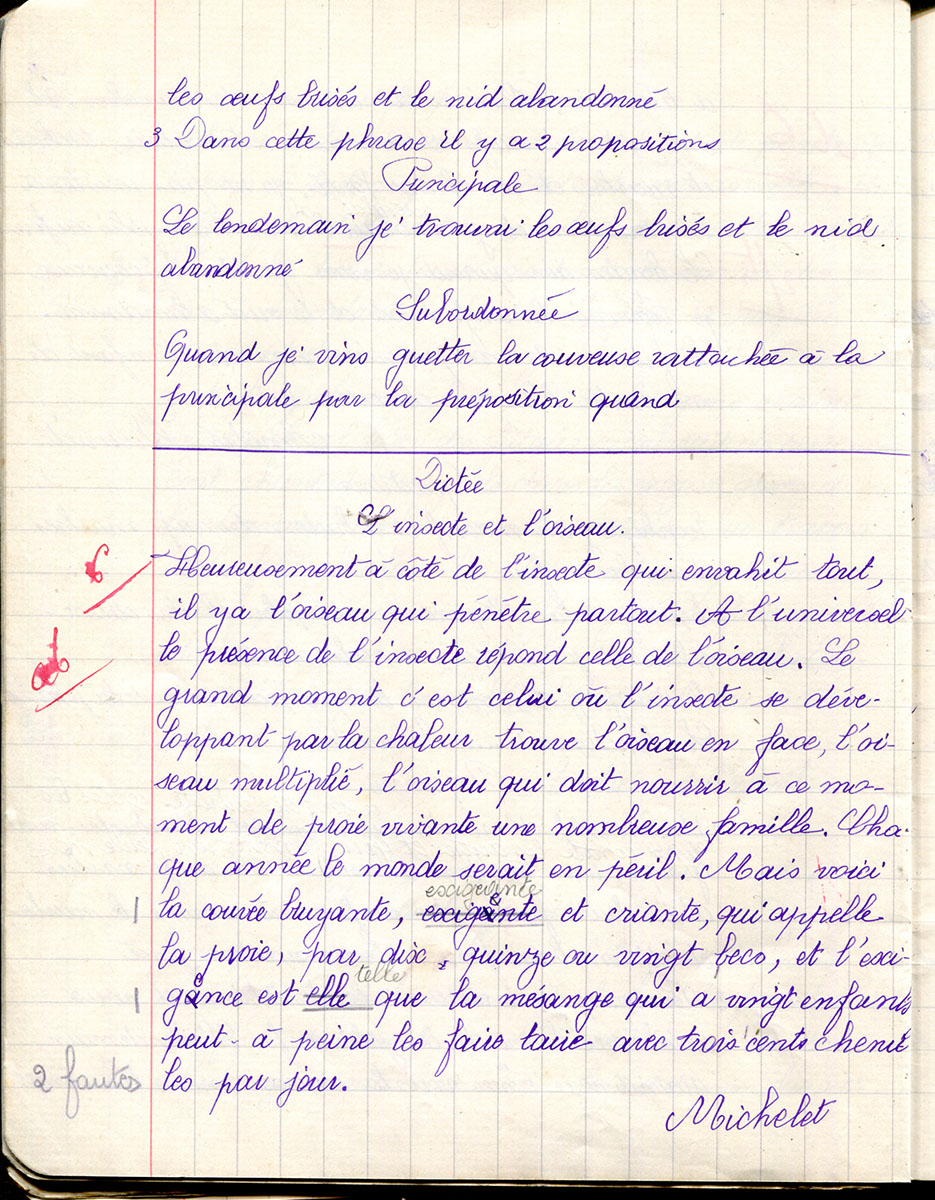 les œufs brisés et le nid abandonné
3 Dans cette phrase il y a 2 propositions
Principale
Le lendemain je trouvai les œufs brisés et le nid
abandonné
Subordonnée
Quand je vins guetter la couveuse rattachée à la
principale par la préposition quand
Dictée
L'insecte et l'oiseau.
Heureusement à côté de l'insecte qui envahit tout,
il y a l'oiseau qui pénètre partout. A l'universel
le présence de l'insecte répond celle de l'oiseau. Le
grand moment c'est celui où l'insecte se déve-
loppant par la chaleur trouve l'oiseau en face, l'oi-
seau multiplié, l'oiseau qui doit nourrir à ce mo-
ment de proie vivante une nombreuse famille. Cha-
que année le monde serait en péril. Mais voici
exigeante
1 la couvée bruyante, exigente et criante, qui appelle
la proie, par dix, quinze ou vingt becs, et l'exi-
telle
1 gence est elle que la mésange qui a vingt enfants
peut-à peine les faire taire avec trois cents chenil
2 fautes les par jour.
Michelet